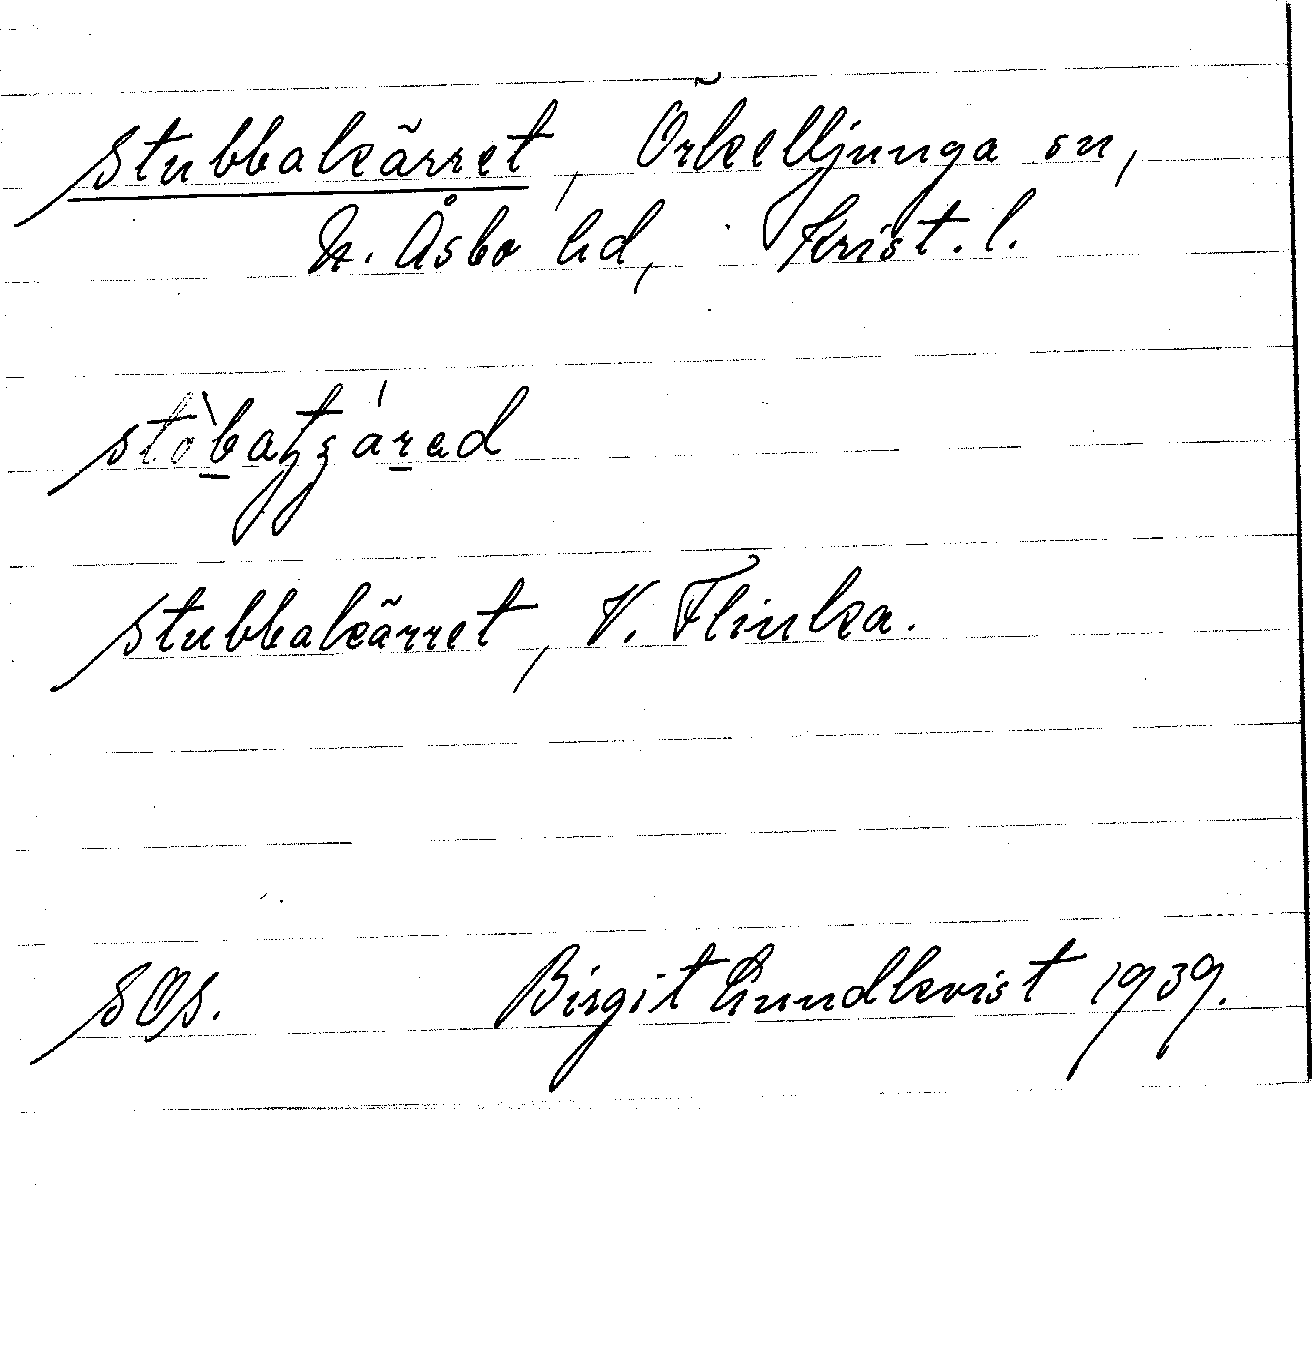 Stubbakärret, Örkelljunga sn,
N. Åsbo hd, Krist. l.
Stubbakärret, V. Flinka.
SOS. Birgit Lundkvist 1939.